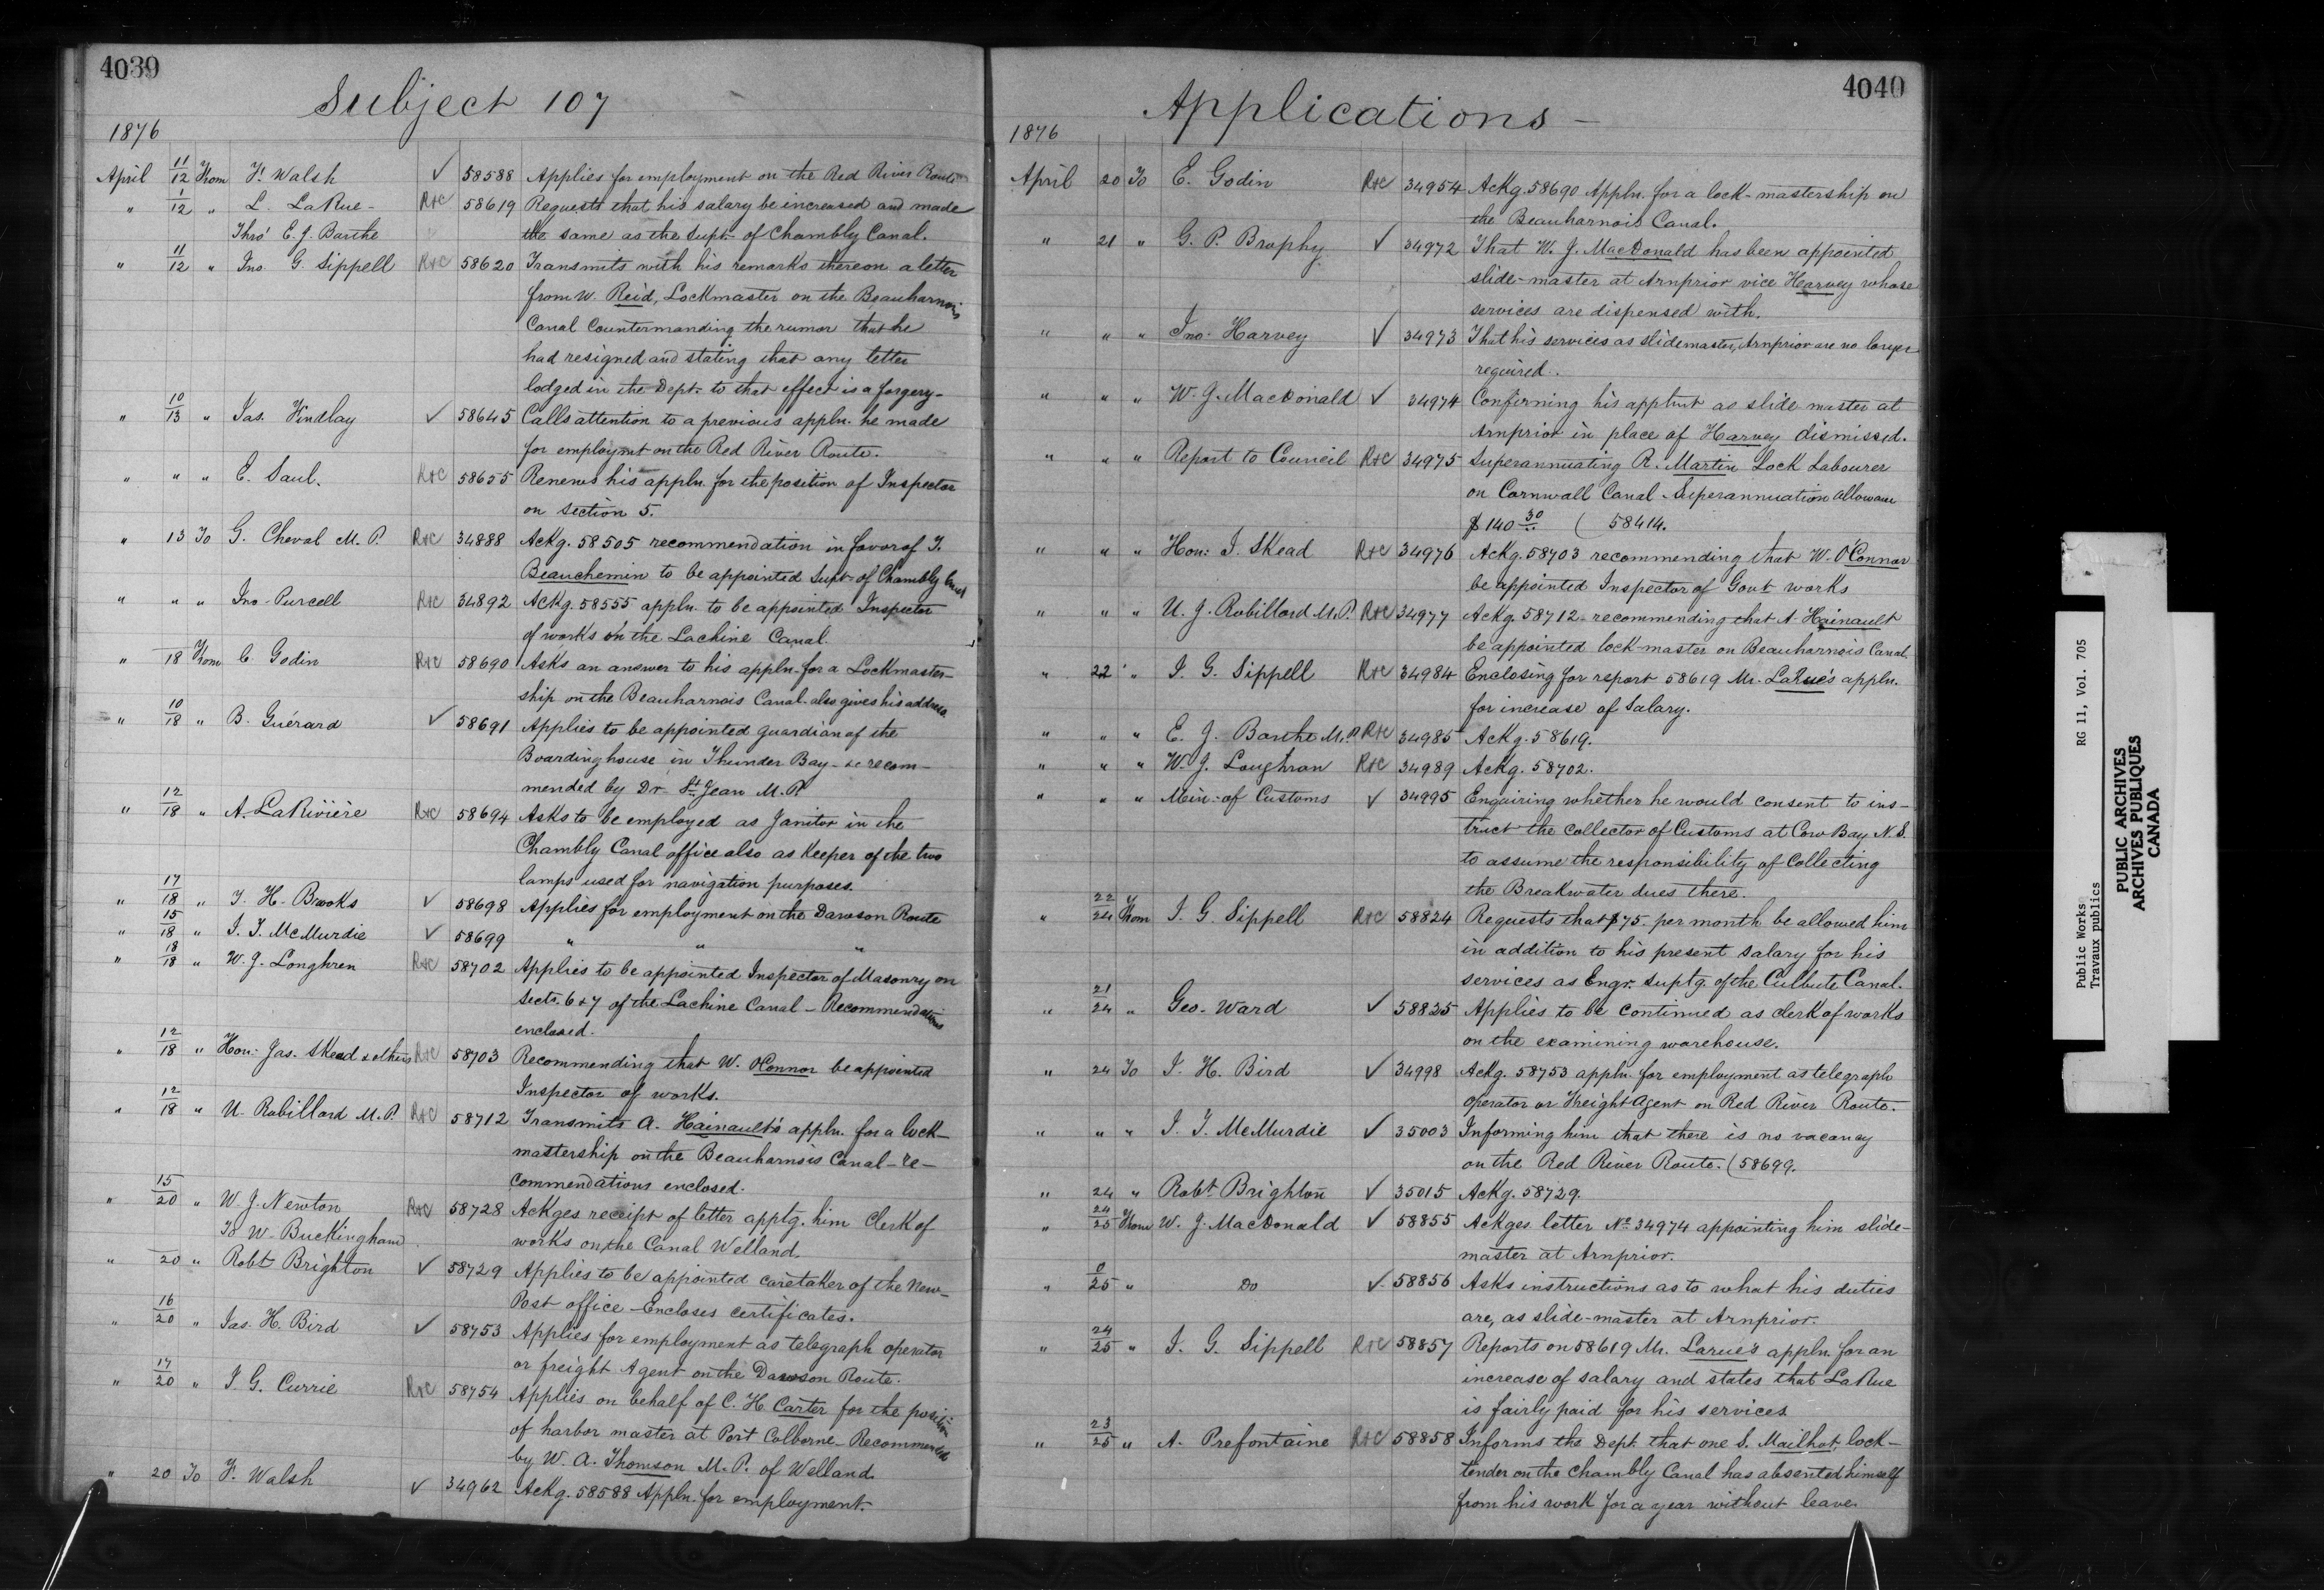 4039
Subject 107
1876
April 11/12 From F. Walsh ✓ 58588 Applies for employment on the Red River Route
" 1/12 " L. LaRue - R&C 58619 Requests that his salary be increased and made
Thro' E. J. Barthe the same as the Supt. of Chambly Canal.
" 11/12 " Jno. G. Sippell R&C 58620 Transmits with his remarks thereon a letter
from W. Reid, Lockmaster on the Beauharnois
Canal Countermanding the rumor that he
had resigned and stating that any letter
lodged in the Dept. to that effect is a forgery -
" 10/13 " Jas. Findlay ✓ 58645 Calls attention to a previous appln. he made
for employmt on the Red River Route.
" " " E. Saul. R&C 58655 Renews his appln. for the position of Inspector
on section 5.
" 13 To G. Cheval M. P. R&C 34888 Ackg. 58505 recommendation in favor of T.
Beauchemin to be appointed Supt. of Chambly Canal
" " " Jno. Purcell R&C 34892 Ackg. 58555 appln. to be appointed Inspector
of works on the Lachine Canal.
" 18 From C. Godin R&C 58690 Asks an answer to his appln. for a Lockmaster-
ship on the Beauharnais Canal. also gives his address
" 10/18 " B. Guérard ✓ 58691 Applies to be appointed guardian of the
Boardinghouse in Thunder Bay - is recom-
mended by Dr. St. Jean M. P.
" 12/18 " A. LaRivière R&C 58694 Asks to be employed as Janitor in the
Chambly Canal office also as Keeper of the two
lamps used for navigation purposes.
" 17/18 " T. H. Brooks ✓ 58698 Applies for employment on the Dawson Route
" 15/18 " J. T. McMurdie ✓ 58699 " " "
" 18/18 " W. J. Longhren R&C 58702 Applies to be appointed Inspector of Masonry on
Sects. 6 & 7 of the Lachine Canal - Recommendations
enclosed.
" 12/18 " Hon: Jas. Skead & others R&C 58703 Recommending that W. OConnor be appointed
Inspector of works.
" 12/18 " U. Robillard M. P. R&C 58712 Transmits A. Hainault's appln. for a lock-
mastership on the Beauharnois Canal - re-
commendations enclosed.
" 15/20 " W. J. Newton R&C 58728 Ackges receipt of letter apptg. him Clerk of
To W. Buckingham works on the Canal Welland.
" 20 " Robt Brighton ✓ 58729 Applies to be appointed caretaker of the New-
Post office - Encloses certificates.
" 16/20 " Jas. H. Bird ✓ 58753 Applies for employment as telegraph operator
or freight Agent on the Dawson Route.
" 17/20 " J. G. Currie R&C 58754 Applies on behalf of C. H. Carter for the position
of harbor master at Port Colborne - Recommended
by W. A. Thomson M. P. of Welland.
" 20 To F. Walsh ✓ 34962 Ackg. 58588 Appln. for employment.
4040
Applications -
1876
April 20 To E. Godin R&C 34954 Ackg. 58690 Appln. for a lock-mastership on
the Beauharnois Canal.
" 21 " G. P. Brophy ✓ 34972 That W. J. MacDonald has been appointed
slide-master at Arnprior vice Harvey whose
services are dispensed with.
" " " Jno. Harvey ✓ 34973 That his services as slidemaster, Arnprior are no longer
required.
" " " W. J. MacDonald ✓ 34974 Confirming his apptmt as slide master at
Arnprior in place of Harvey dismissed.
" " " Report to Council R&C 34975 Superannuating R. Martin Lock Labourer
on Cornwall Canal - Superannuation allowance
$ 140 30/.. ( 58414.
" " " Hon: J. Skead R&C 34976 Ackg. 58703 recommending that W. O'Connor
be appointed Inspector of Govt works
" " " U. J. Robillard M. P. R&C 34977 Ackg. 58712 recommending that A. Hainault
be appointed lock-master on Beauharnois Canal.
" 22 " J. G. Sippell R&C 34984 Enclosing for report 58619 Mr. LaRue's appln.
for increase of Salary.
" " " E. J. Barthe M. P. R&C 34985 Ackg. 58619.
" " " W. J. Loughran R&C 34989 Ackg. 58702.
" " " Min: of Customs ✓ 34995 Enquiring whether he would consent to ins-
truct the Collector of Customs at Cow Bay N. S.
to assume the responsibility of Collecting
the Breakwater dues there.
" 22/24 From J. G. Sippell R&C 58824 Requests that $75. per month be allowed him
in addition to his present salary for his
services as Engr. suptg. of the Culbute Canal.
" 21/24 " Geo. Ward ✓ 58825 Applies to be continued as clerk of works
on the examining warehouse.
" 24 To J. H. Bird ✓ 34998 Ackg. 58753 appln. for employment as telegraph
operator or Freight Agent on Red River Route.
" " " J. T. McMurdie ✓ 35003 Informing him that there is no vacancy
on the Red River Route. (58699.
" 24 " Robt Brighton ✓ 35015 Ackg. 58729.
" 24/25 From W. J. MacDonald ✓ 58855 Ackges letter No. 34974 appointing him slide-
master at Arnprior.
" 0/25 " Do ✓ 58856 Asks instructions as to what his duties
are, as slide-master at Arnprior.
" 24/25 " J. G. Sippell R&C 58857 Reports on 58619 Mr. Larue's appln. for an
increase of salary and states that LaRue
is fairly paid for his services
" 23/25 " A. Prefontaine R&C 58858 Informs the Dept. that one S. Mailhot, lock-
tender on the Chambly Canal has absented himself
from his work for a year without leave.
Public Works RG 11, Vol. 705
Travaux publics
PUBLIC ARCHIVES
ARCHIVES PUBLIQUES
CANADA